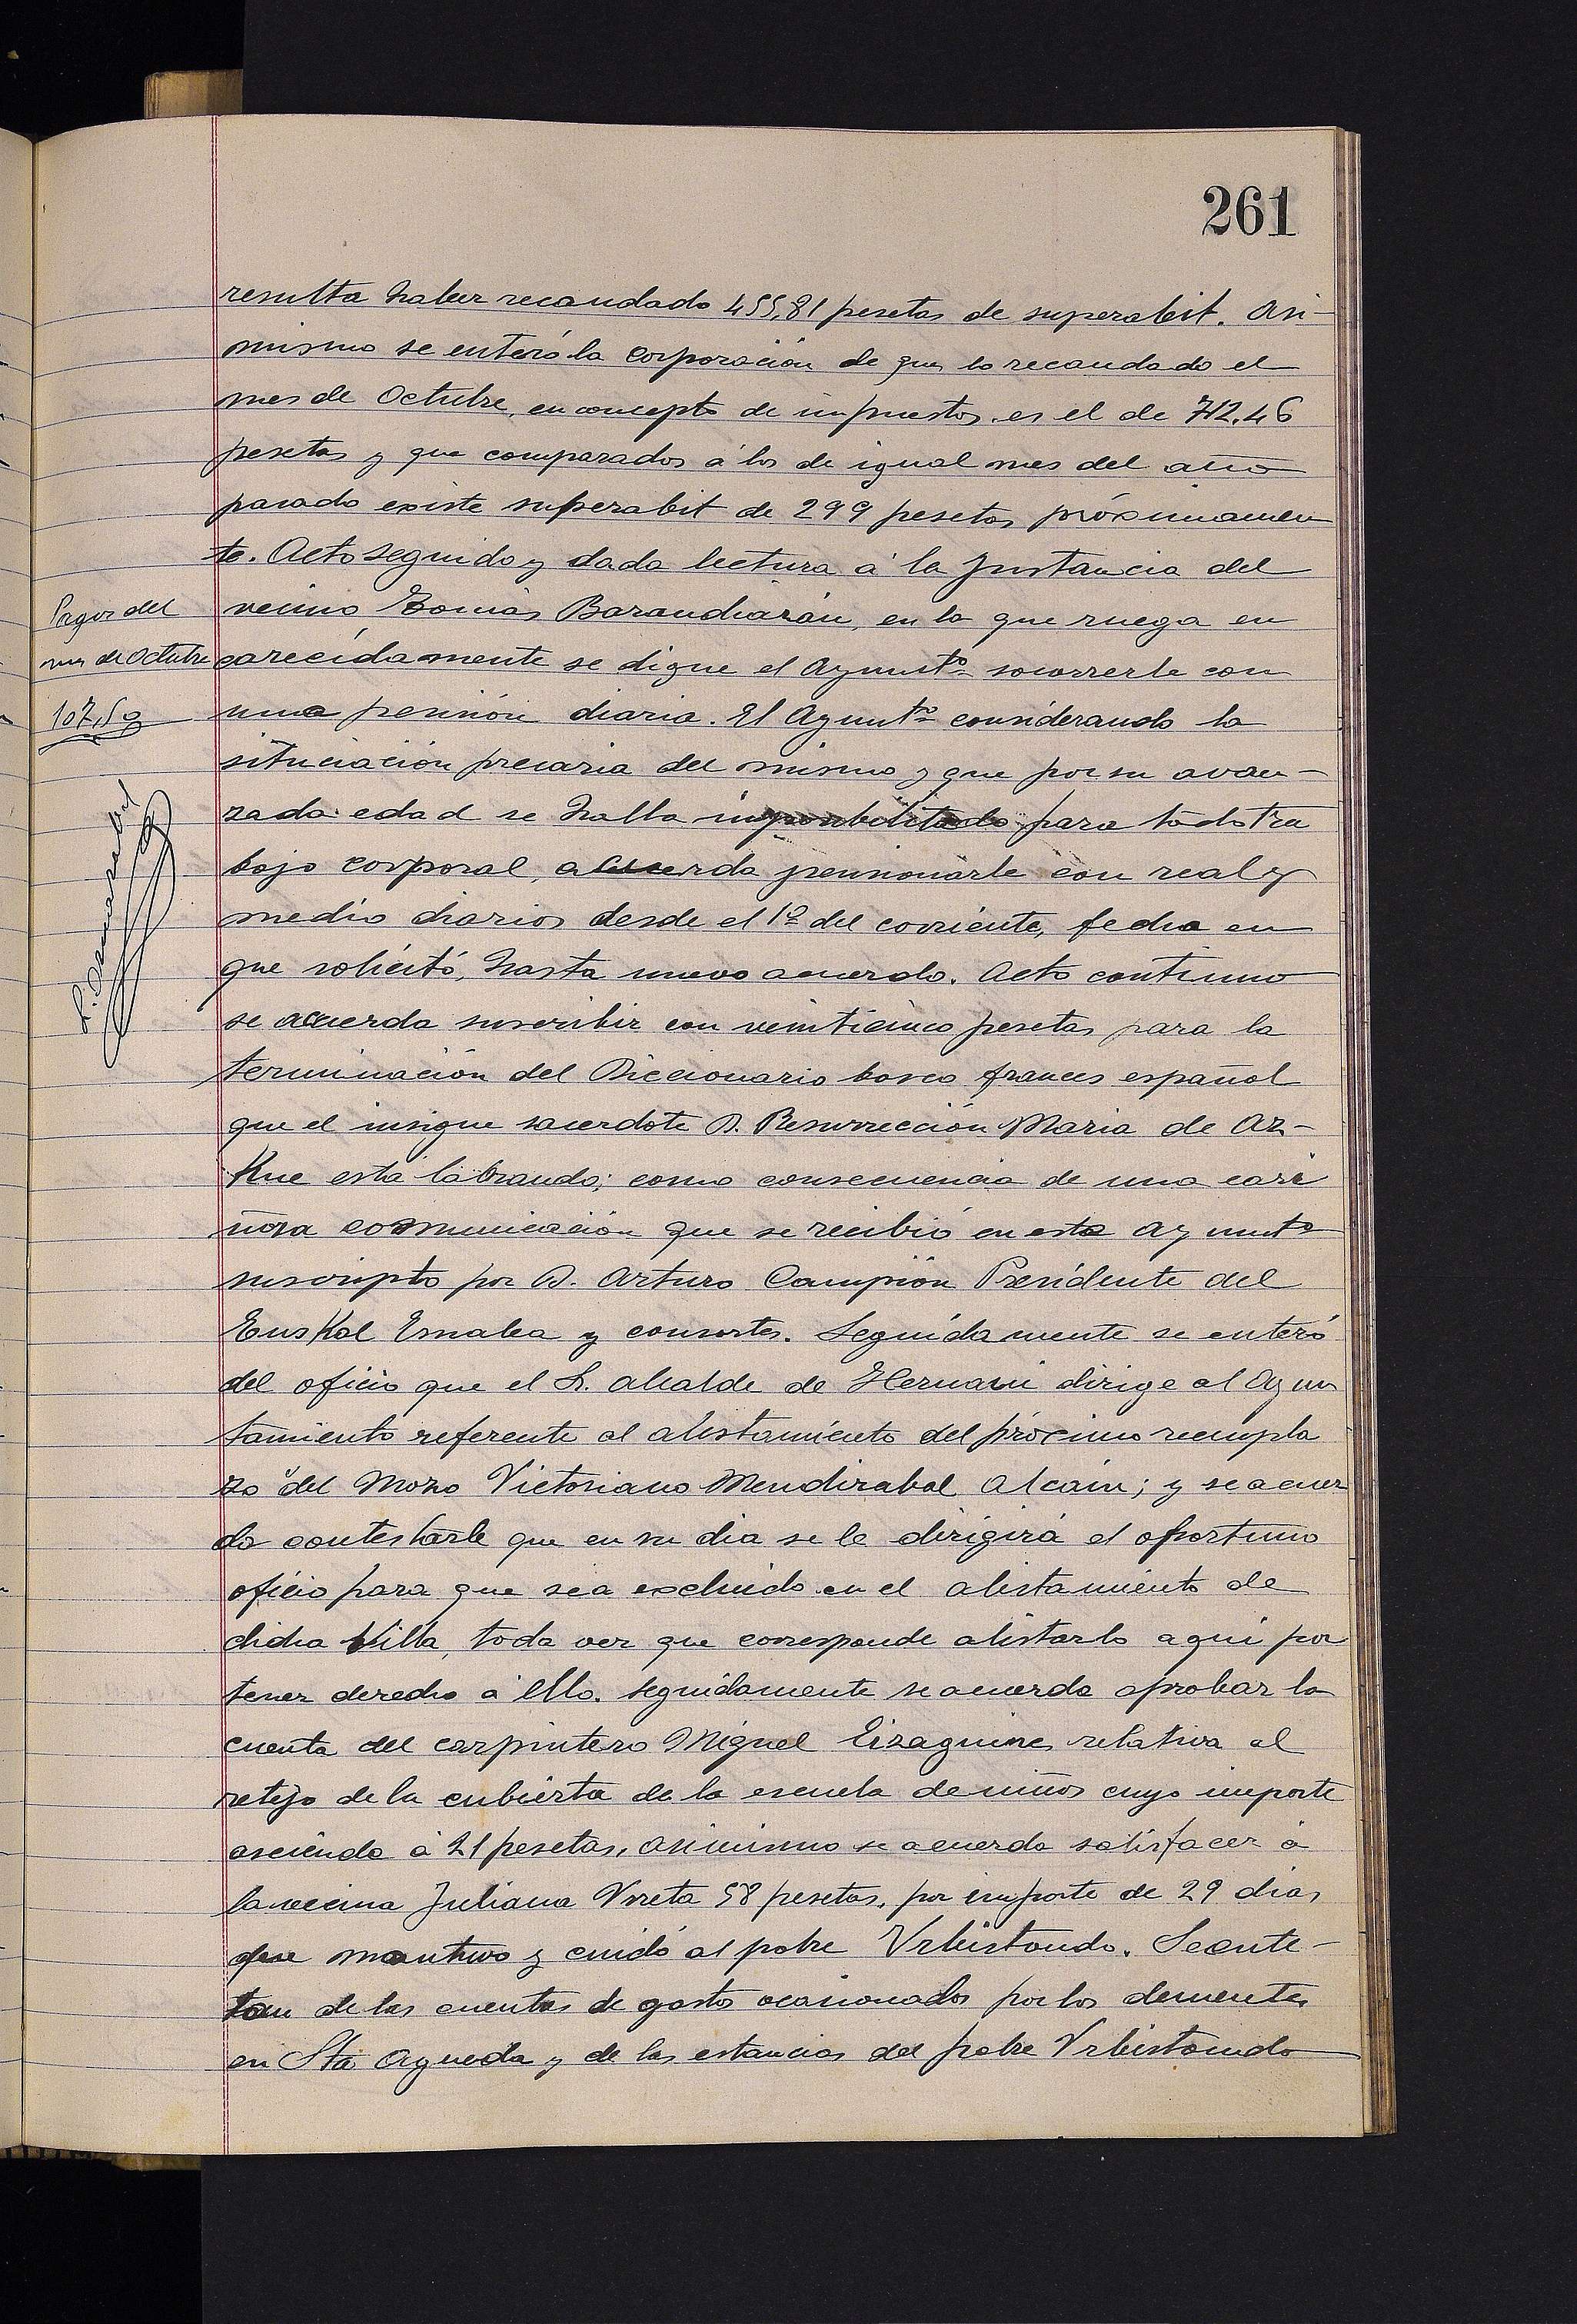 261
resulta haber recaudado 455,81 pesetas de superabit. Asi-
mismo se enteró la corporación de que lo recaudado el
mes de Octubre, en concepto de impuestos es el de 712.46
pesetas y que comparados á los de igual mes del año
pasado existe superabit de 299 pesetas próximamen
te. Acto seguido y dada lectura á la Instancia del
vecino Tomás Barandiarán, en la que ruega en
carecidamente se digne el Ayuntº socorrerle con
una pensión diaria. El Ayuntº considerando la
situciación precaria del mismo y que por su avan-
zada edad se halla imposibilitado para todo tra
bajo corporal, acuerda pensionarle con real y
medio diarios desde el 1º del corriente, fecha en
que solicitó, hasta nuevo acuerdo. Acto continuo
se acuerda suscribir con veinticinco pesetas para la
terminación del Diccionario basco frances español
que el insigne sacerdote D. Resurrección Maria de Az-
Kue está labrando; como consecuencia de una cari
ñosa comunicación que se recibió en este Ayuntº
suscripto por D. Arturo Campión Presidente del
Euskal Esnalea y consortes. Seguidamente se enteró
del oficio que el Sr. alcalde de Hernani dirige al Ayun
tamiento referente al alistamiento del próximo reempla
zo del Mozo Victoriano Mendizabal Alcain; y se acuer
da contestarle que en su dia se le dirigirá el oportuno
oficio para que sea excluido en el alistamiento de
dicha Villa, toda vez que corresponde alistarlo aqui por
tener derecho á ello. Seguidamente se acuerda aprobar la
cuenta del carpintero Miguel Eizaguirre, relativa al
retejo de la cubierta de la escuela de niños cuyo importe
asciende á 21 pesetas, asimismo se acuerda satisfacer á
la vecina Juliana Urreta 58 pesetas, por importe de 29 dias
que mantuvo y cuidó al pobre Urbistondo. Se ente-
ran de las cuentas de gastos ocasionados por los dementes
en Sta Agueda y de las estancias del pobre Urbistondo
Pagos del
mes de Octubre
107,59